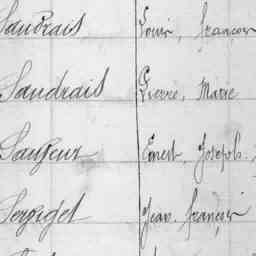 Saudrais Louis, François
Saudrais Pierre, Marie
Saugeur Ernest, Joseph.
Serpaget Jean, François